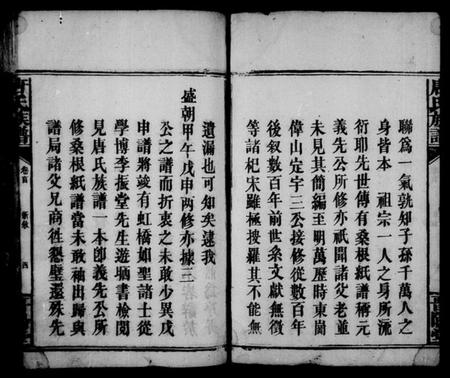 唐氏族譜
聯爲一氣孰知子孫千萬人之
身皆本 祖宗一人之身所流
衍耶先世傳有桑根紙譜稱元
義先公所修亦祇聞諸父老並
未見其簡編至明萬歷時東崗
偉山定宇三公接修從數百年
後叙數百年前世系文獻無徵
等諸杞宋雖極搜羅其不能無
遺漏也可知矣逮我
盛朝甲午戊申兩修亦據三
公之譜而折衷之未敢少異戊
申譜將竣有虹橋如聖諳士從
學博李振堂先生遊購書檢閱
見唐氏族譜一本卽義先公所
修桑根紙譜當未敢袖出歸與
譜局諸父兄商徃懇璧還殊先
唐氏族譜
卷首
新叙
四